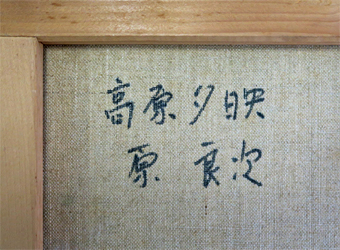 高原夕映
原 良次